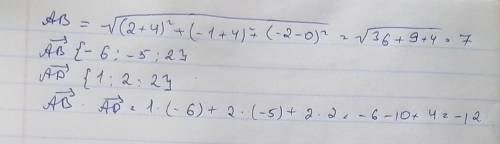 AB = √(2+4)² + (-1+4)² + (-2-0)² = √36+9+4 = 7
AB {-6; -5; 2}
AD {1; 2; 2}
AB · AD = 1·(-6) + 2·(-5) + 2·2 = -6-10+4 = -12